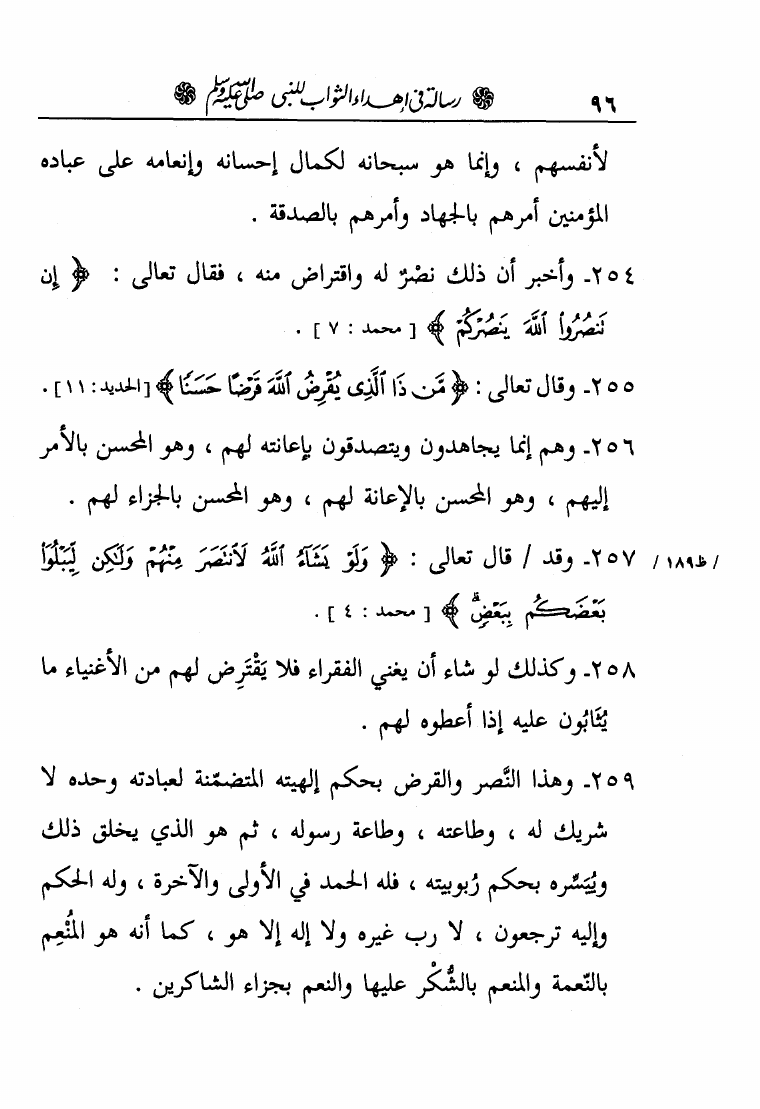 ٩٦ رسالة في إهداء الثواب للنبي صلى الله عليه وسلم
لأنفسهم ، وإنما هو سبحانه لكمال إحسانه وإنعامه على عباده
المؤمنين أمرهم بالجهاد وأمرهم بالصدقة .
٢٥٤ـ وأخبر أن ذلك نصْرٌ له واقتراض منه ، فقال تعالى : ﴿ إِن
تَنصُرُوا۟ ٱللَّهَ يَنصُرْكُمْ ﴾ [ محمد : ٧ ] .
٢٥٥ـ وقال تعالى : ﴿ مَّن ذَا ٱلَّذِى يُقْرِضُ ٱللَّهَ قَرْضًا حَسَنًا ﴾ [الحديد : ١١] .
٢٥٦ـ وهم إنما يجاهدون ويتصدقون بإعانته لهم ، وهو المحسن بالأمر
إليهم ، وهو المحسن بالإعانة لهم ، وهو المحسن بالجزاء لهم .
/ ظ١٨٩ / ٢٥٧ـ وقد / قال تعالى : ﴿ وَلَوْ يَشَآءُ ٱللَّهُ لَٱنتَصَرَ مِنْهُمْ وَلَـٰكِن لِّيَبْلُوَا۟
بَعْضَكُم بِبَعْضٍۢ ۗ ﴾ [ محمد : ٤ ] .
٢٥٨ـ وكذلك لو شاء أن يغني الفقراء فلا يَقْتَرِض لهم من الأغنياء ما
يُثَابُون عليه إذا أعطوه لهم .
٢٥٩ـ وهذا النَّصر والقرض بحكم إلهيته المتضمّنة لعبادته وحده لا
شريك له ، وطاعته ، وطاعة رسوله ، ثم هو الذي يخلق ذلك
ويُيَسِّره بحكم رُبوبيته ، فله الحمد في الأولى والآخرة ، وله الحكم
وإليه ترجعون ، لا رب غيره ولا إله إلا هو ، كما أنه هو المُنْعِم
بالنّعمة والمنعم بالشُّكْر عليها والنعم بجزاء الشاكرين .